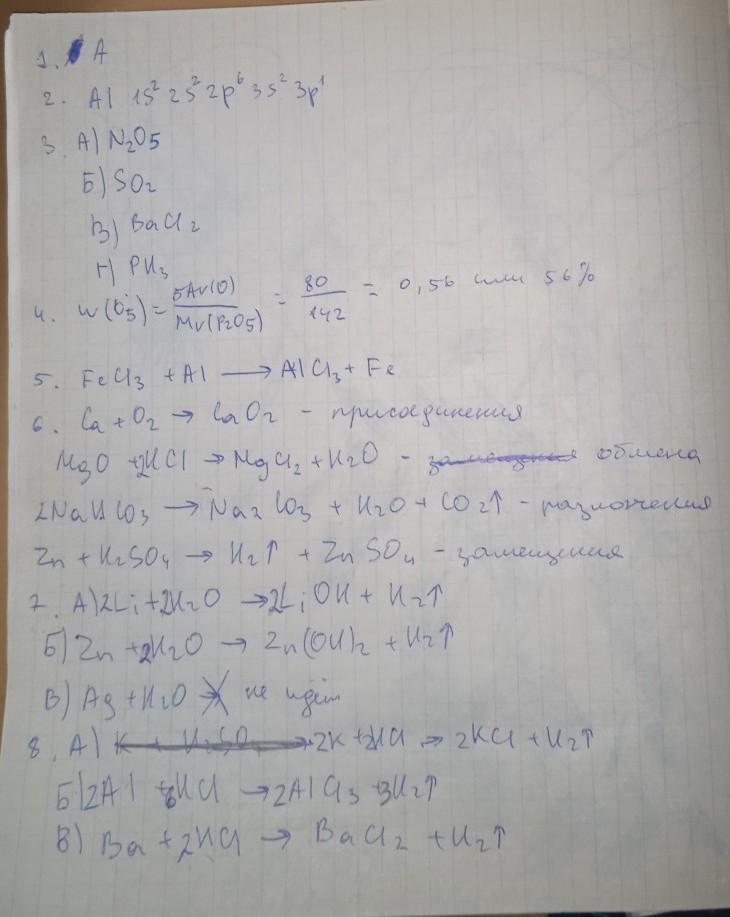 1. А
2. Al 1s² 2s² 2p⁶ 3s² 3p¹
3. А) N₂O₅
Б) SO₂
В) BaCl₂
Г) PH₃
4. w(O₅) = 5Ar(O) / Mr(P₂O₅) = 80 / 142 = 0,56 или 56%
5. FeCl₃ + Al → AlCl₃ + Fe
6. Ca + O₂ → CaO₂ - присоединения
MgO + 2HCl → MgCl₂ + H₂O - замещения обмена
2NaHCO₃ → Na₂CO₃ + H₂O + CO₂↑ - разложения
Zn + H₂SO₄ → H₂↑ + ZnSO₄ - замещения
7. А) 2Li + 2H₂O → 2LiOH + H₂↑
Б) Zn + 2H₂O → Zn(OH)₂ + H₂↑
В) Ag + H₂O ↛ не идёт
8. А) K + H₂SO₄ → 2K + 2HCl → 2KCl + H₂↑
Б) 2Al + 6HCl → 2AlCl₃ + 3H₂↑
В) Ba + 2HCl → BaCl₂ + H₂↑